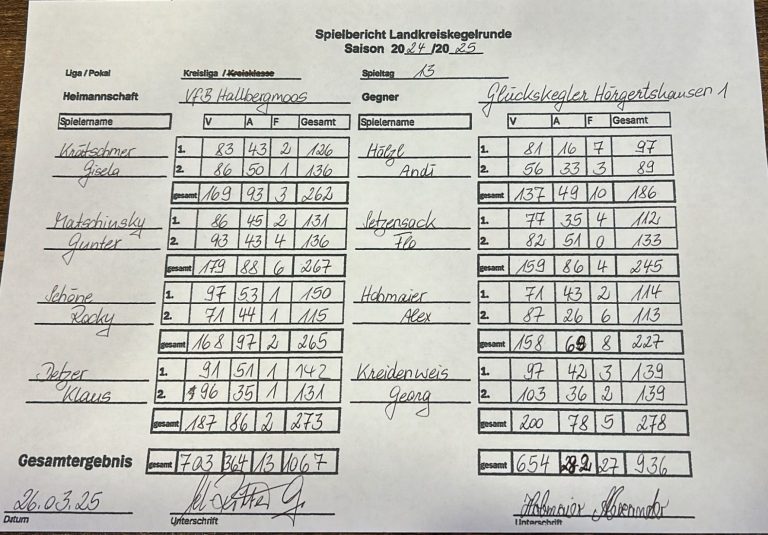 Spielbericht Landkreiskegelrunde
Saison 2024/2025
Liga / Pokal Kreisliga / Kreisklasse Spieltag 13
Heimannschaft VfB Hallbergmoos Gegner Glückskegler Hörgertshausen 1
Spielername V A F Gesamt Spielername V A F Gesamt
Krätschmer 1. 83 43 2 126 Hölzl 1. 81 16 7 97
Gisela 2. 86 50 1 136 Andi 2. 56 33 3 89
gesamt 169 93 3 262 gesamt 137 49 10 186
Matschinsky 1. 86 45 2 131 Setzensack 1. 77 35 4 112
Gunter 2. 93 43 4 136 Flo 2. 82 51 0 133
gesamt 179 88 6 267 gesamt 159 86 4 245
Schöne 1. 97 53 1 150 Hobmaier 1. 71 43 2 114
Rocky 2. 71 44 1 115 Alex 2. 87 26 6 113
gesamt 168 97 2 265 gesamt 158 69 8 227
Detzer 1. 91 51 1 142 Kreidenweis 1. 97 42 3 139
Klaus 2. 96 35 1 131 Georg 2. 103 36 2 139
gesamt 187 86 2 273 gesamt 200 78 5 278
Gesamtergebnis gesamt 703 364 13 1067 gesamt 654 282 27 936
26.03.25 Hobmaier
Datum Unterschrift Unterschrift